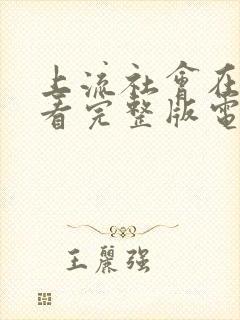 上流社會在
看完整版電
王麗強